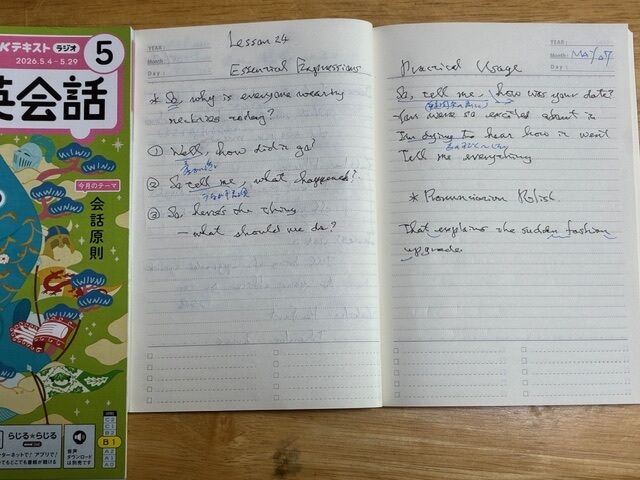 Kテキスト ラジオ 5
2026.5.4→5.29
英会話
今月のテーマ
会話原則
WINWIN
らじる★らじる
音声
ダウンロード
は別売です
LEVEL
C2
C1
B2
B1
A2
A1
A0
YEAR :
Month
Day :
Lesson 24
Essential Expressions
* So, why is everyone wearing
neckties today?
① Well, how did it go?
② So tell me, what happened?
③ So, here's the thing
– what should we do?
YEAR :
Month : MAY/07
Day :
Practical Usage
So, tell me, how was your date?
You were so excited about it
I'm dying to hear how it went
Tell me everything
* Pronunciation Polish
That explains the sudden fashion
upgrade.